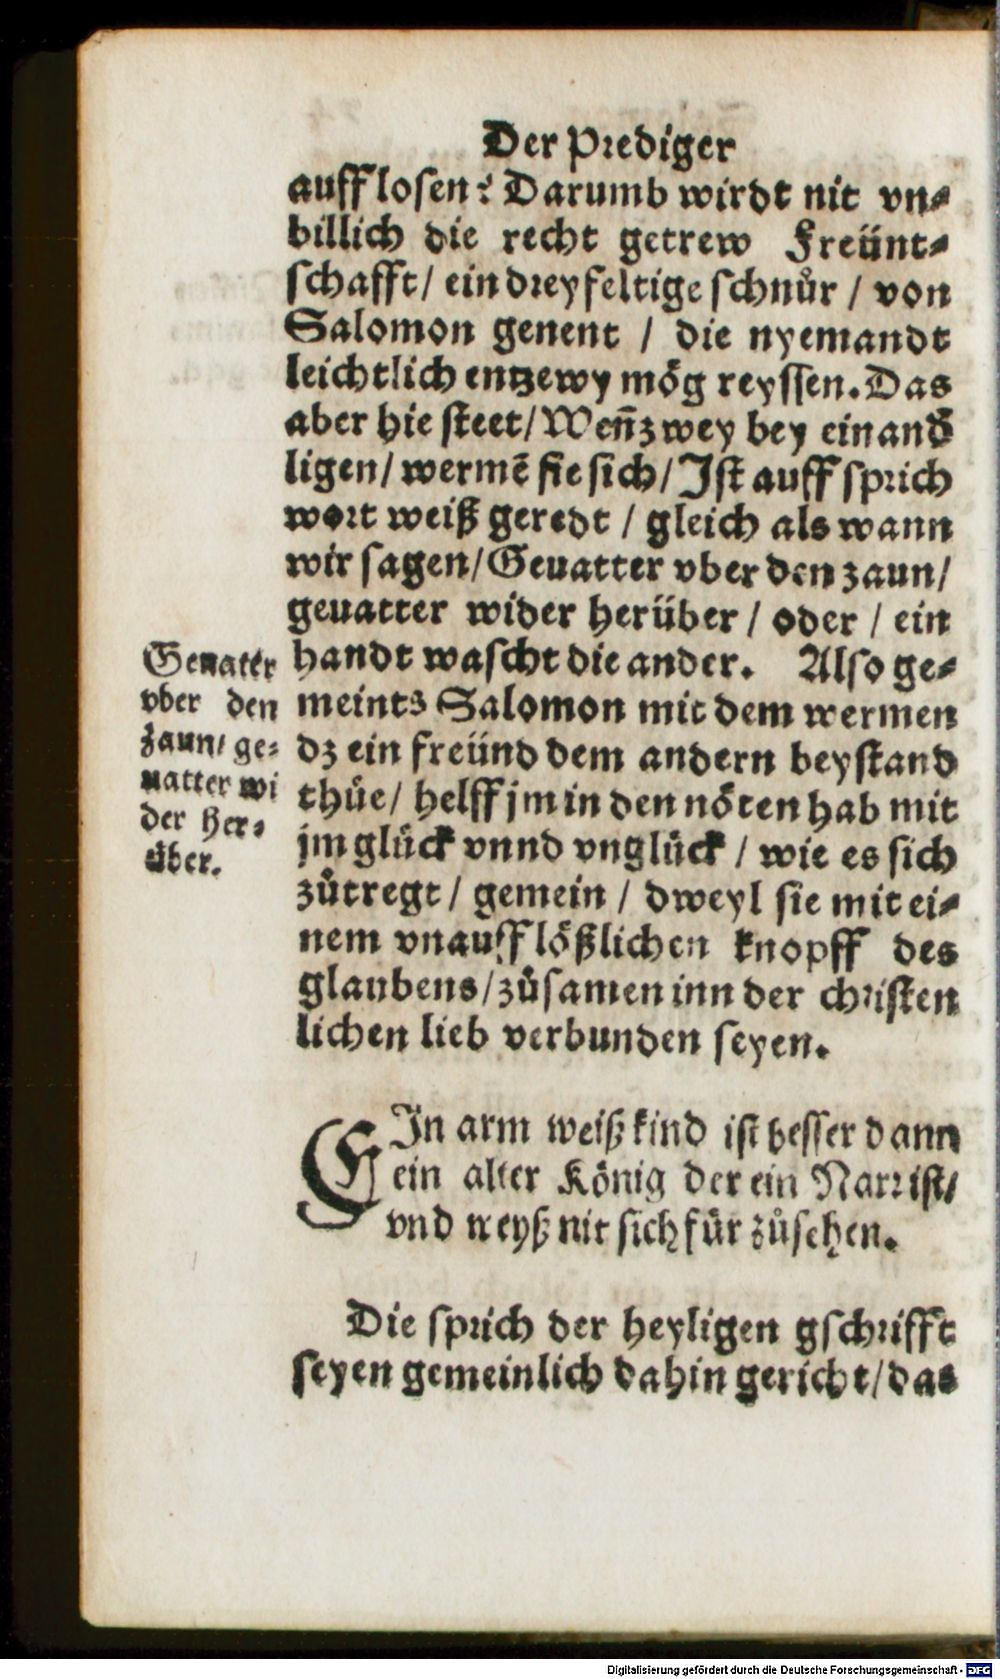 Der Prediger
auff losen? Darumb wirdt nit vn⸗
billich die recht getrew Freünt⸗
schafft / ein dreyfeltige schnůr / von
Salomon genent / die nyemandt
leichtlich entzewy mög reyssen. Das
aber hie steet / Wen̄ zwey bey einand̄
ligen / wermē sie sich / Ist auff sprich
wort weiß geredt / gleich als wann
wir sagen / Geuatter vber den zaun /
geuatter wider herüber / oder / ein
handt wascht die ander. Also ge⸗
meints Salomon mit dem wermen
dz ein freünd dem andern beystand
thüe / helff jm in den nöten hab mit
jm glück vnnd vnglück / wie es sich
zůtregt / gemein / dweyl sie mit ei⸗
nem vnaufflößlichen knopff des
glaubens / zůsamen inn der christen
lichen lieb verbunden seyen.
Geuatter
vber den
zaun / ge⸗
uatter wi
der her⸗
über.
EIn arm weiß kind ist besser dann
ein alter König der ein Narr ist /
vnd weyß nit sich für zůsehen.
Die sprich der heyligen gschrifft
seyen gemeinlich dahin gericht / das
Digitalisierung gefördert durch die Deutsche Forschungsgemeinschaft - DFG